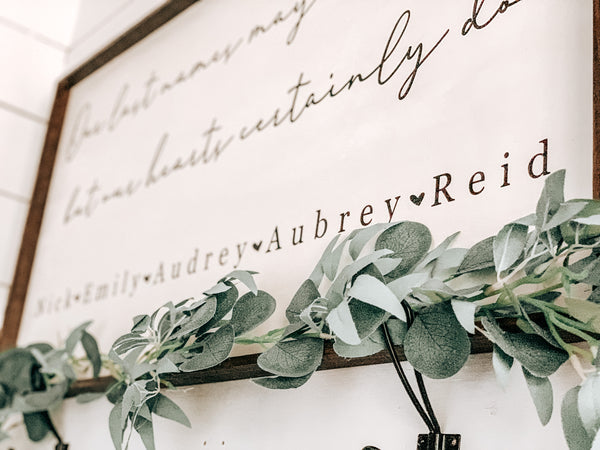 Our last names may
but our hearts certainly do
Nick♥Emily♥Audrey♥Aubrey♥Reid